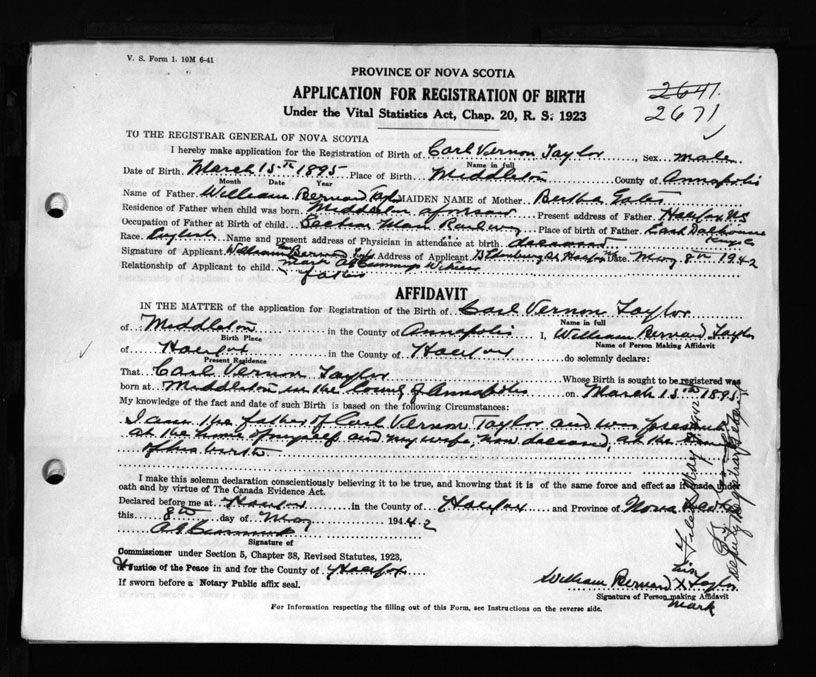 V. S. Form 1. 10M 6-41
PROVINCE OF NOVA SCOTIA
APPLICATION FOR REGISTRATION OF BIRTH
Under the Vital Statistics Act, Chap. 20, R. S. 1923
2641
2671
TO THE REGISTRAR GENERAL OF NOVA SCOTIA
I hereby make application for the Registration of Birth of Carl Vernon Taylor, Sex male
Name in full
Date of Birth March 15th 1895 Place of Birth Middleton County of Annapolis
Month Date Year
Name of Father William Bernard Taylor MAIDEN NAME of Mother Bertha
Residence of Father when child was born Middleton Present address of Father Halifax NS
Occupation of Father at Birth of child Section Man Railway Place of birth of Father East Dalhousie
Race English Name and present address of Physician in attendance at birth deceased
Signature of Applicant William Bernard Taylor Address of Applicant Halifax Date May 8th 1942
mark Witness
Relationship of Applicant to child father
AFFIDAVIT
IN THE MATTER of the application for Registration of the Birth of Carl Vernon Taylor
Name in full
of Middleton in the County of Annapolis I, William Bernard Taylor
Birth Place Name of Person Making Affidavit
of Halifax in the County of Halifax do solemnly declare:
Present Residence
That Carl Vernon Taylor Whose Birth is sought to be registered was
born at Middleton in the County of Annapolis on March 15th 1895
My knowledge of the fact and date of such Birth is based on the following Circumstances:
I am the father of Carl Vernon Taylor and was present
at the home of myself and my wife, now deceased, at the time
of his birth
I make this solemn declaration conscientiously believing it to be true, and knowing that it is of the same force and effect as if made under
oath and by virtue of The Canada Evidence Act.
Declared before me at Halifax in the County of Halifax and Province of Nova Scotia
this 8th day of May 1942
Signature of
Commissioner under Section 5, Chapter 38, Revised Statutes, 1923,
Justice of the Peace in and for the County of Halifax
If sworn before a Notary Public affix seal.
his
William Bernard X Taylor
Signature of Person making Affidavit
mark
For Information respecting the filling out of this Form, see Instructions on the reverse side.
Filed May
Deputy Registrar General